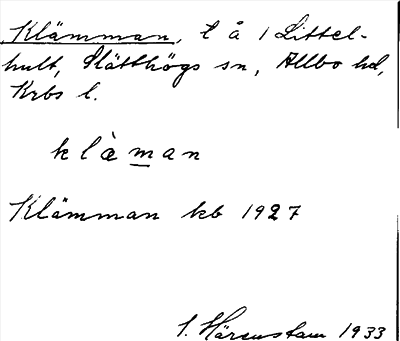 Klämman, t å 1 Littel-
hult, Slätthögs sn, Allbo hd,
Krbs l.
klàman
Klämman kb 1927
1. Härenstam 1933